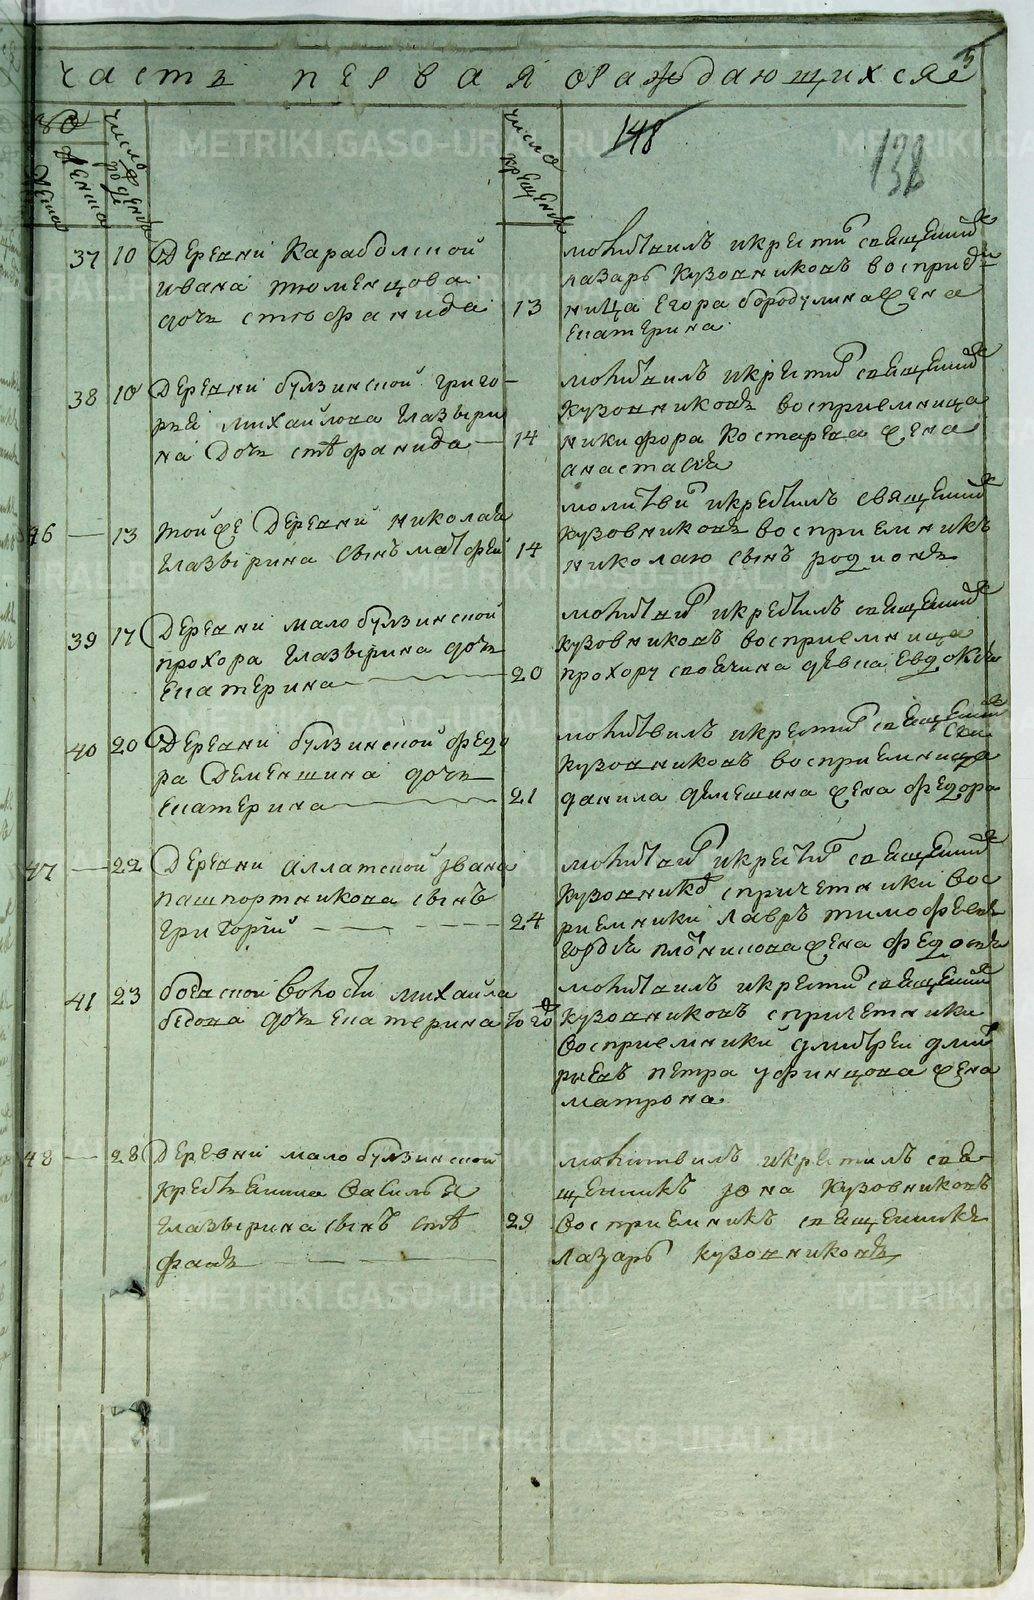 часть первая ораждающихся
5
число рождения
число крещения
148
138
37 10 Деревни Караболской
ивана тюменцова
дочь стефанида
13
молитвилъ и крестилъ священник
лазарь Кузовниковъ восприем
ница Егора бородулина жена
Екатерина
38 10 Деревни булзинской григо-
рья михайлова глазыри
на Дочь стефанида
14
молитвилъ и крестилъ священник
Кузовниковъ восприемница
никифора Костарева жена
анастасия
46 — 13 тойже Деревни николая
глазырина сынъ матфей
14
молитвил и крестилъ священник
Кузовниковъ восприемникъ
николаю сынъ родионъ
39 17 Деревни мало булзинской
прохора глазырина дочь
Екатерина
20
молитвил и крестилъ священник
кузовниковъ восприемница
прохору девка Евдокия
40 20 Деревни булзинской федо
ра Деменшина дочь
Екатерина
21
молитвилъ и крестил священник
кузовниковъ восприемница
данила жена федора
47 — 22 Деревни аллакской Iвана
пашпортникова сынъ
григорiй
24
молитвил и крестил священник
Кузовников с причетники вос
риемники лавръ тимофеевъ
жена федосья
41 23 боевской волости михайла
дочь Екатерина того
молитвилъ и крестил священник
кузовниковъ с причетники
восприемники дмитрей дмит
рыевъ петра уфинцова жена
матрона
48 — 28 Деревни мало булзинской
крестьянина Василья
глазырина сынъ сте
фанъ
29
молитвилъ и крестилъ свя
щенникъ Iона Кузовниковъ
восприемникъ священникъ
лазарь кузовниковъ
METRIKI.GASO-URAL.RU